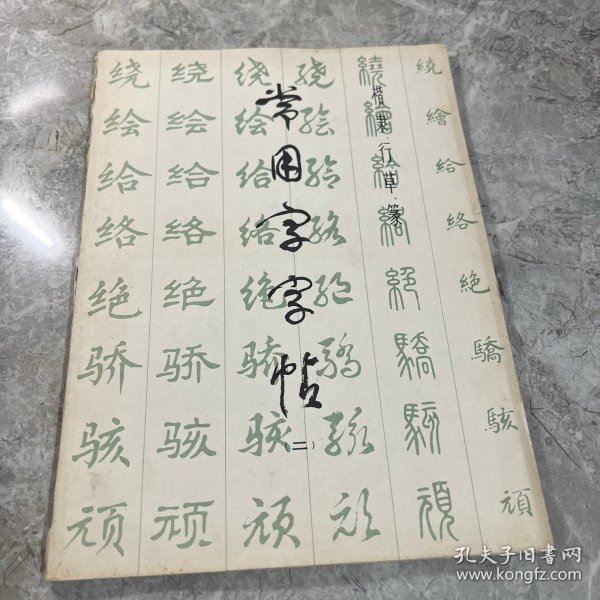 常用字字帖
(二)
楷·隶·行·草·篆
绕 绕 绕 绕 繞 繞
绘 绘 绘 绘 繪 繪
给 给 给 给 給 給
络 络 络 络 絡 絡
绝 绝 绝 绝 絕 絶
骄 骄 骄 驕 驕 驕
骇 骇 骇 骇 駭 駭
顽 顽 顽 顽 頑 頑
孔夫子旧书网
www.kongfz.com